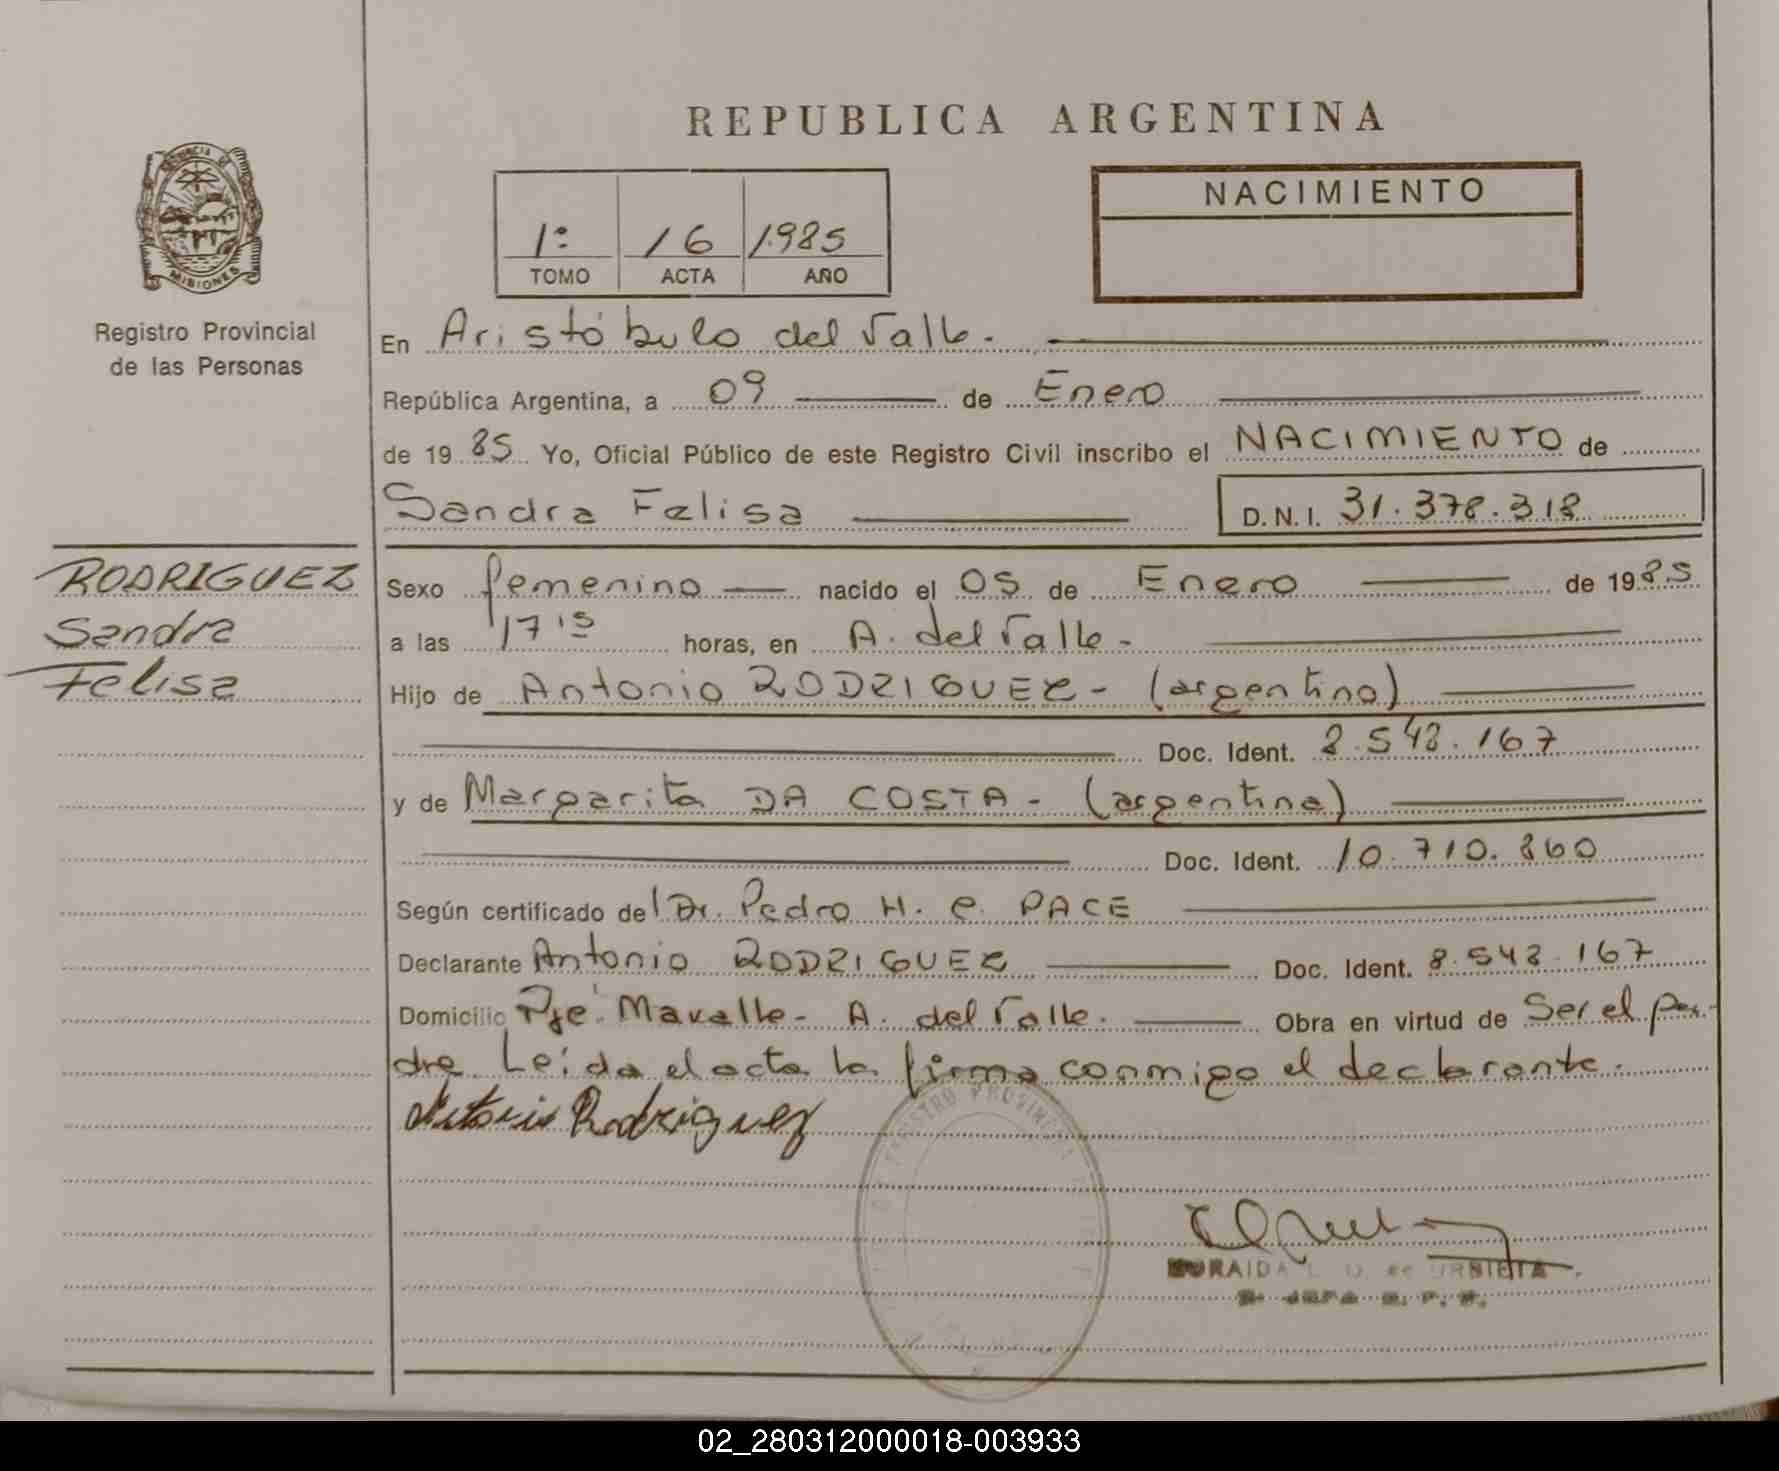 REPUBLICA ARGENTINA
PROVINCIA DE
MISIONES
Registro Provincial
de las Personas
1º 16 1985
TOMO ACTA AÑO
NACIMIENTO
En Aristóbulo del Valle.
República Argentina, a 09 de Enero
de 1985 Yo, Oficial Público de este Registro Civil inscribo el NACIMIENTO de
Sandra Felisa D.N.I. 31.378.318
RODRIGUEZ
Sandra
Felisa
Sexo femenino nacido el 05 de Enero de 1985
a las 17 15 horas, en A. del Valle -
Hijo de Antonio RODRIGUEZ - (argentino)
Doc. Ident. 8.548.167
y de Margarita DA COSTA - (argentina)
Doc. Ident. 10.710.860
Según certificado del Dr. Pedro H. C. PACE
Declarante Antonio RODRIGUEZ Doc. Ident. 8.548.167
Domicilio Pje. - A. del Valle. Obra en virtud de Ser el pa-
dre Leída el acta la firma conmigo el declarante.
Antonio Rodriguez
REGISTRO PROVINCIAL
de URBIETA
02_280312000018-003933